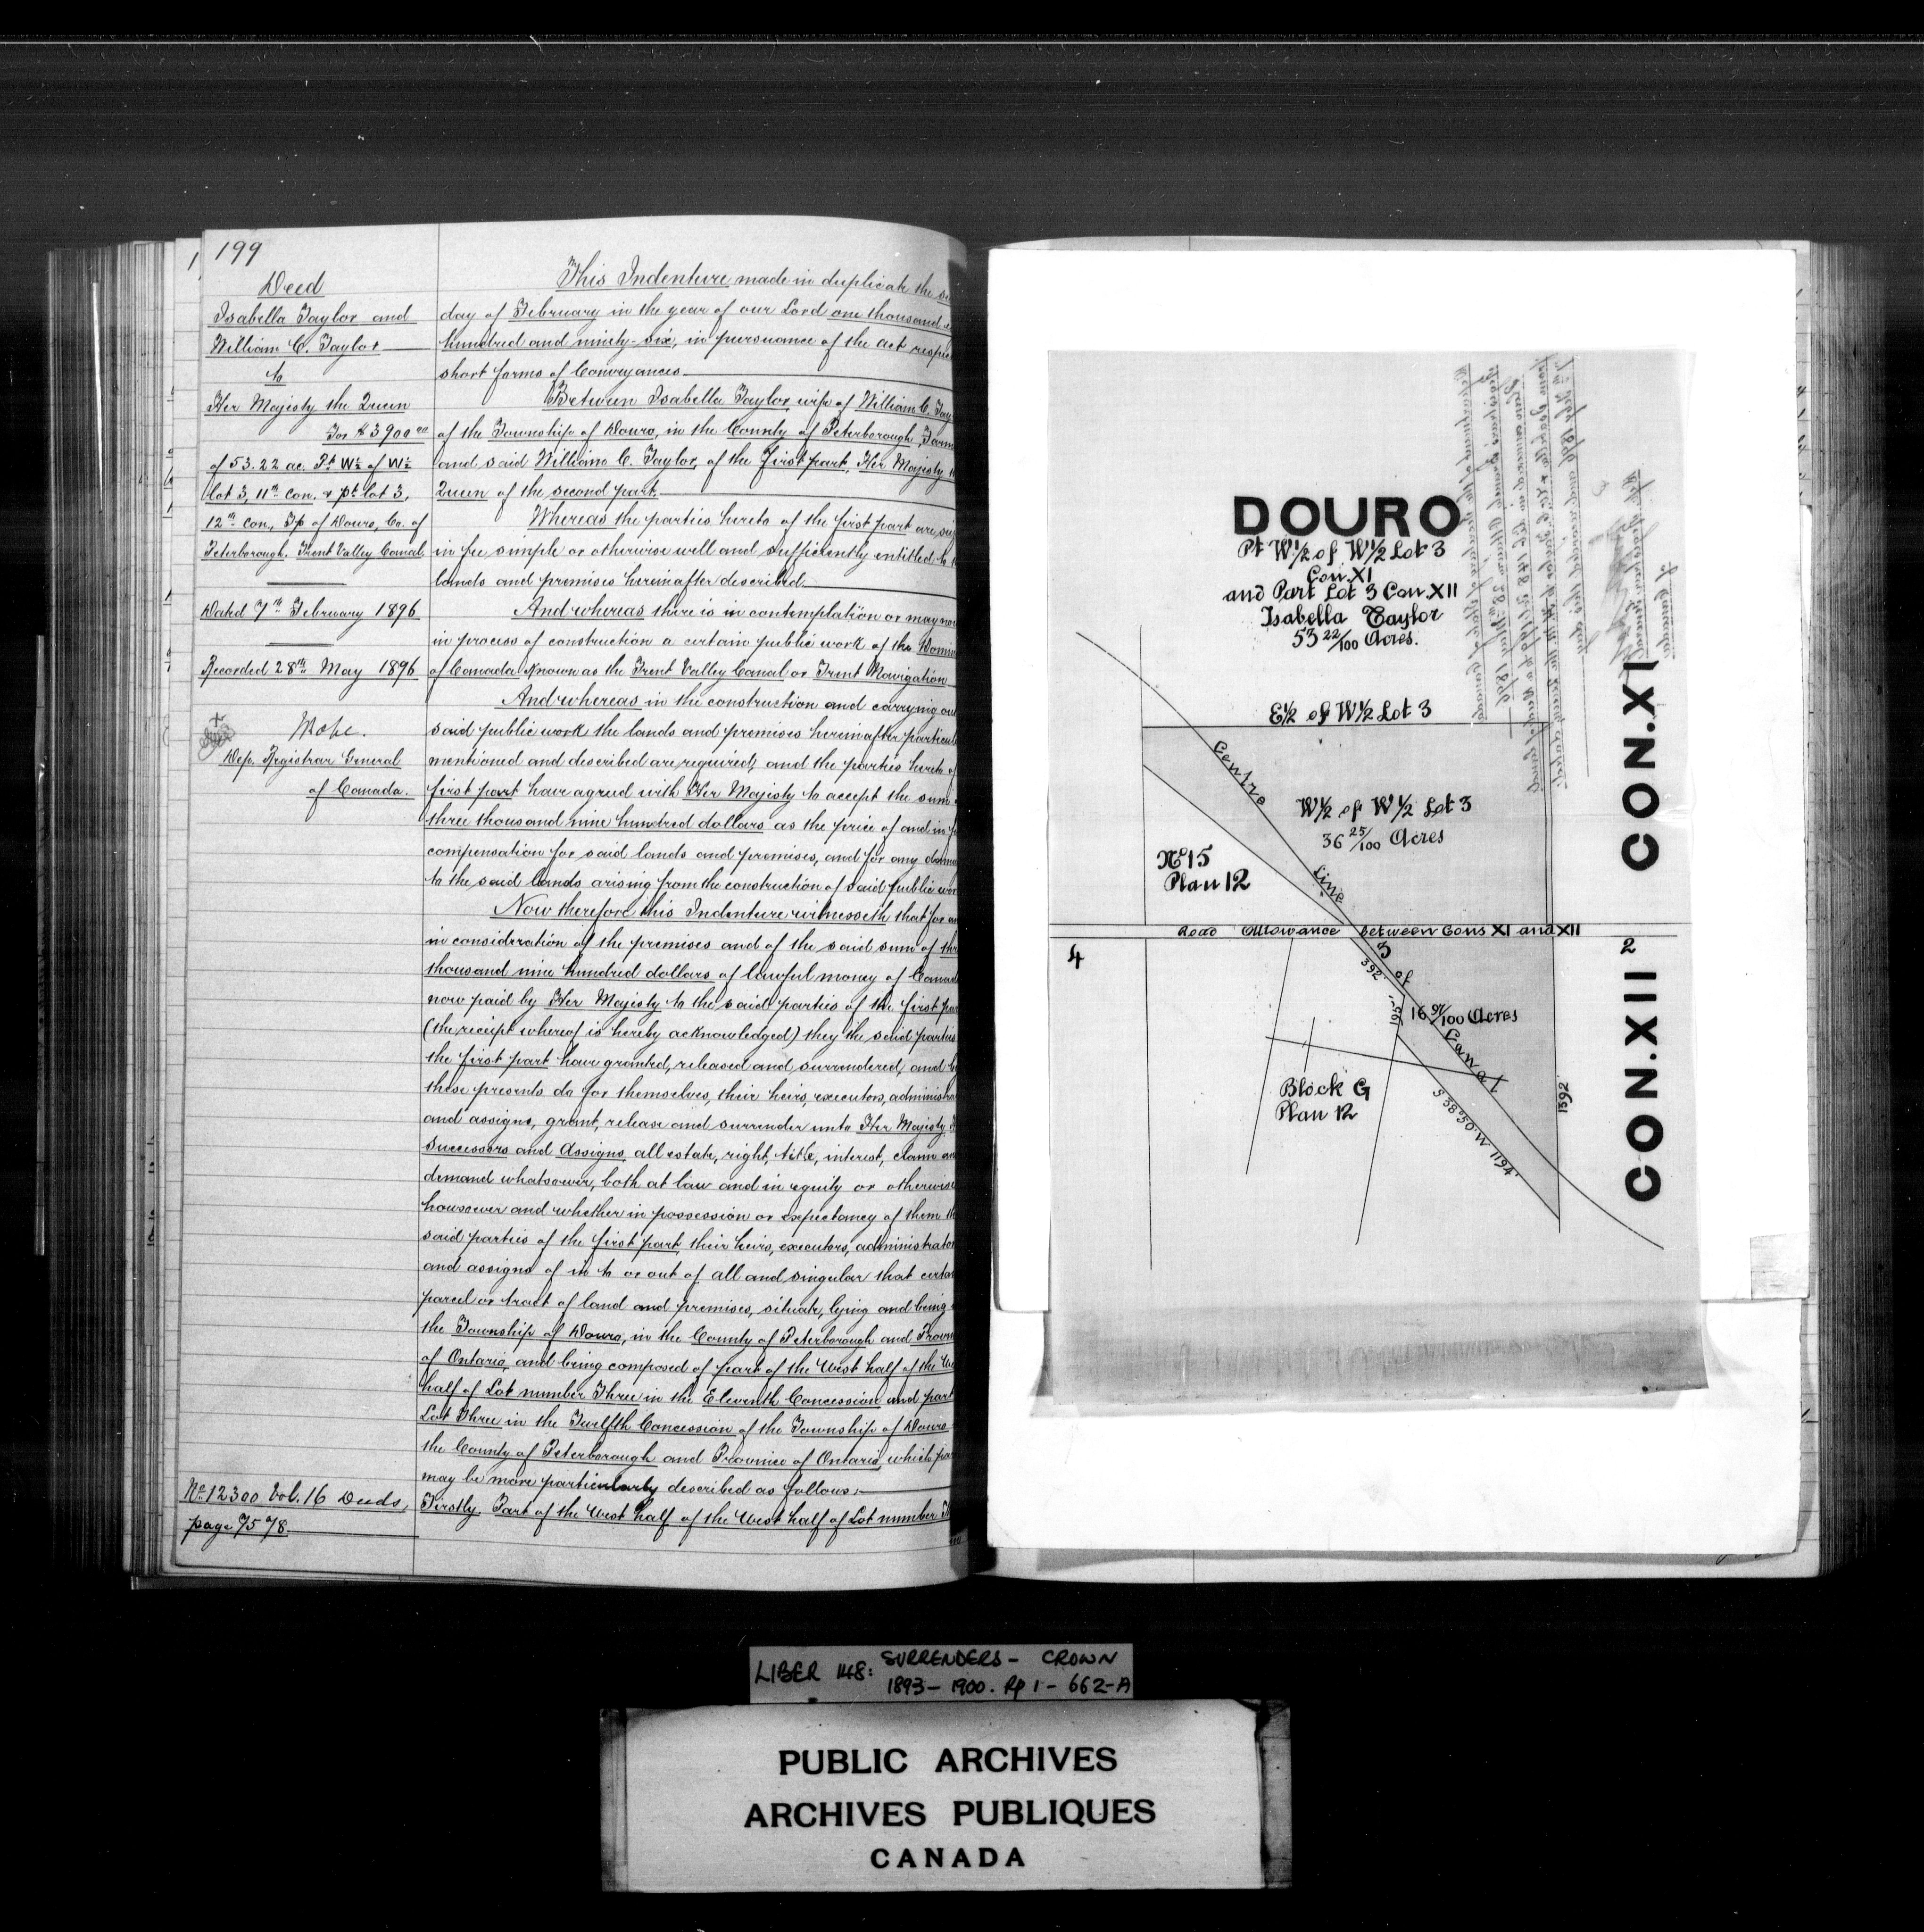 199
Deed
Isabella Taylor and
William C. Taylor
to
Her Majesty the Queen
For $3900.00
of 53.22 ac. Pt W½ of W½
lot 3, 11th Con. & pt lot 3,
12th Con., Tp of Douro, Co. of
Peterborough. Trent Valley Canal
Dated 7th February 1896
Recorded 28th May 1896
Dep. Registrar General
of Canada.
No 12300 Vol. 16 Deeds,
page 7578
This Indenture made in duplicate the
day of February in the year of our Lord one thousand
hundred and ninety-six, in pursuance of the act
short forms of Conveyances
Between Isabella Taylor, wife of William C.
of the Township of Douro, in the County of Peterborough,
and said William C. Taylor, of the first part, Her Majesty
Queen of the second part.
Whereas the parties hereto of the first part are
in fee simple or otherwise well and sufficiently entitled to
lands and premises hereinafter described
And whereas there is in contemplation or may
in process of construction a certain public work of the
of Canada known as the Trent Valley Canal or Trent Navigation
And whereas in the construction and carrying
said public work the lands and premises hereinafter
mentioned and described are required, and the parties hereto
first part have agreed with Her Majesty to accept the sum
three thousand nine hundred dollars as the price of and in
compensation for said lands and premises, and for any
to the said lands arising from the construction of said public
Now therefore this Indenture witnesseth that for
in consideration of the premises and of the said sum of
thousand nine hundred dollars of lawful money of
now paid by Her Majesty to the said parties of the first
(the receipt whereof is hereby acknowledged) they the said
the first part have granted, released and surrendered, and
these presents do for themselves, their heirs, executors,
and assigns, grant, release and surrender unto Her Majesty
Successors and Assigns, all estate, right, title, interest, claim
demand whatsoever, both at law and in equity or
howsoever and whether in possession or expectancy of them
said parties of the first part, their heirs, executors,
and assigns of in to or out of all and singular that
parcel or tract of land and premises, situate, lying and being
the Township of Douro, in the County of Peterborough and
of Ontario, and being composed of part of the West half of the
half of Lot number Three in the Eleventh Concession and part
Lot Three in the Twelfth Concession of the Township of Douro
the County of Peterborough and Province of Ontario, which
may be more particularly described as follows:
Firstly. Part of the West half of the West half of Lot number
DOURO
Pt W½ of W½ Lot 3
Con. XI
and Part Lot 3 Con. XII
Isabella Taylor
53 22/100 Acres.
E½ of W½ Lot 3
Centre
W½ of W½ Lot 3
36 25/100 Acres
No 15
Plan 12
Line
Road Allowance between Cons XI and XII
4
3
2
392'
of
195'
16 97/100 Acres
Canal
Block G
Plan 12
S 38°50' W 1194'
1392'
CON. XI
CON. XII
LIBER 148: SURRENDERS - CROWN
1893 - 1900. Pp 1 - 662-A
PUBLIC ARCHIVES
ARCHIVES PUBLIQUES
CANADA